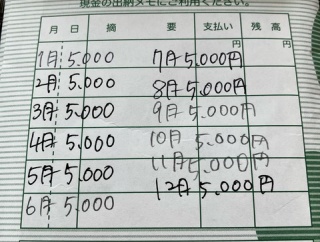 現金の出納メモにご利用ください。
月 日 摘 要 支払い 残 高
円 円
1月 5.000 7月 5.000円
2月 5.000 8月 5.000円
3月 5.000 9月 5.000円
4月 5.000 10月 5.000円
5月 5.000 11月 5.000円
6月 5.000 12月 5.000円